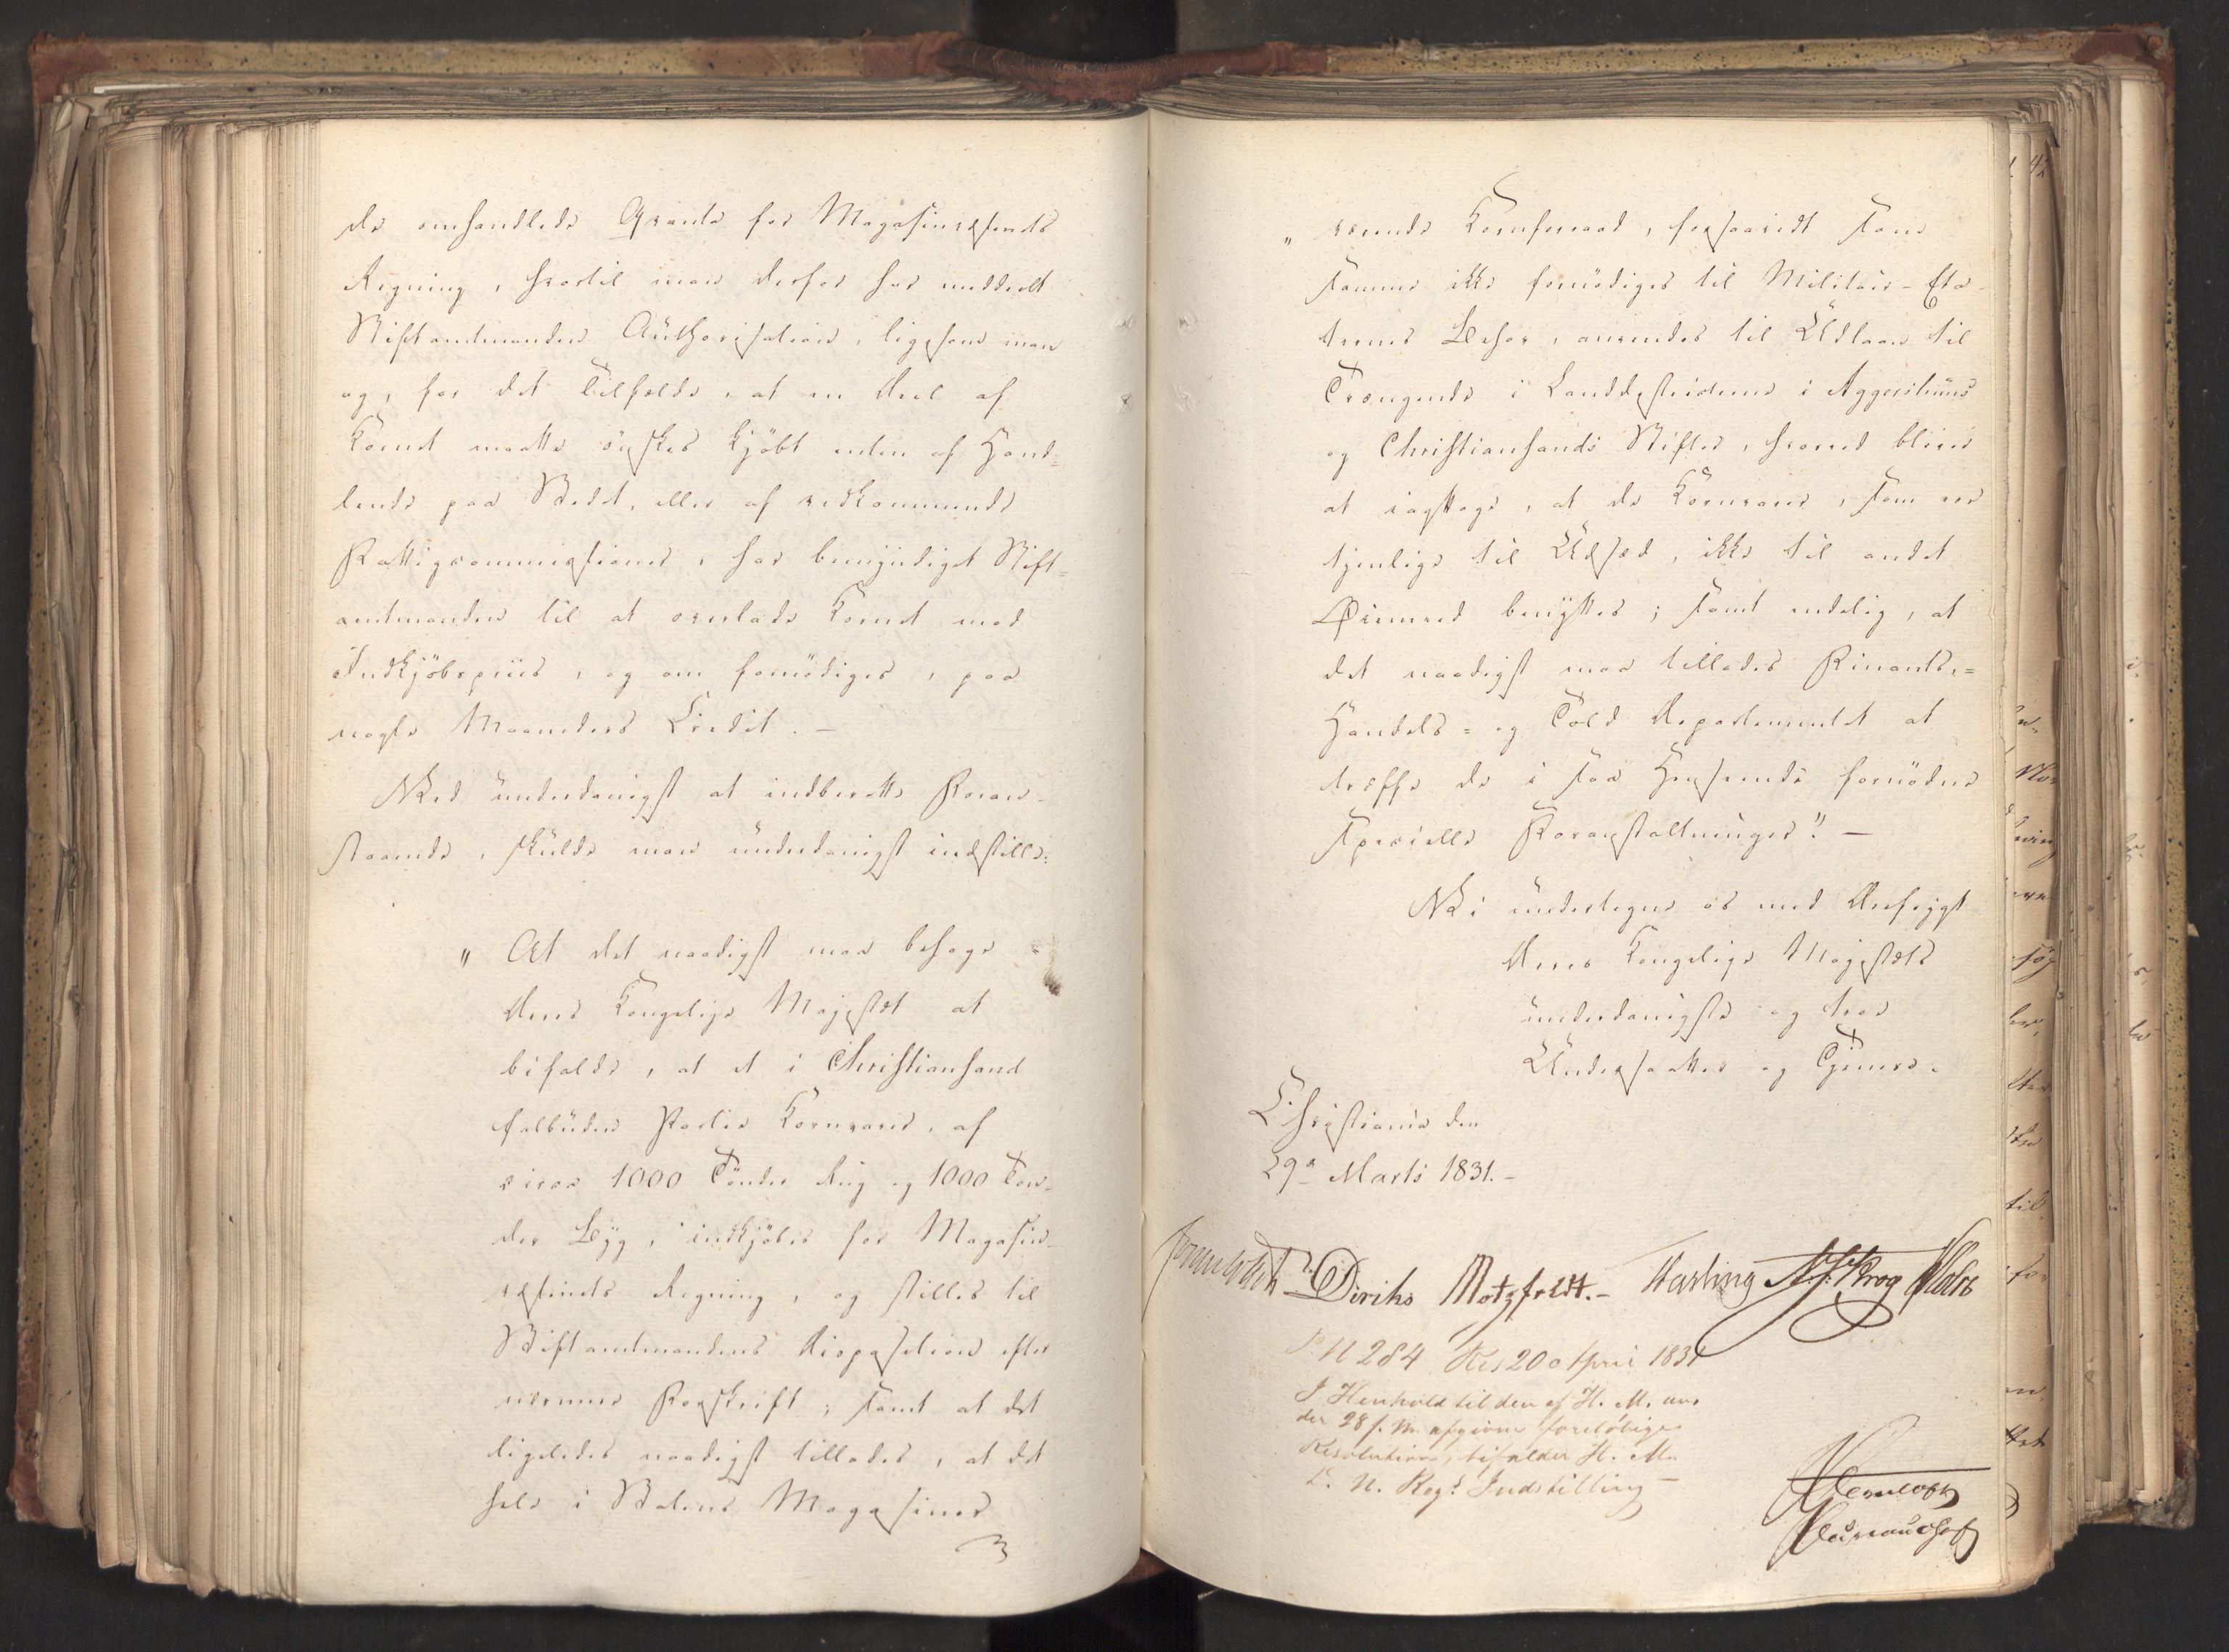 de omhandlede Qvanta for Magasinvæsenets
Regning, hvortil man derfor har meddeelt
Stiftamtmanden Authorisation, ligesom man
og, for det Tilfælde, at en Deel af
Kornet maatte ønskes kjøbt enten af Hand-
lende paa Stedet, eller af vedkommende
Fattigcommissioner, har bemyndiget Stift-
amtmanden til at overlade Kornet mod
Indkjøbspriis, og om fornødiges, paa
nogle Maaneders Credit. —
Ved underdanigst at indberette Foran-
staaende, skulde man underdanigst indstille:
„ At det naadigst maa behage
Deres Kongelige Majestæt at
bifalde, at et i Christiansand
falbuden Partie Kornvarer, af
circa 1000 Tønder Rug og 1000 Tøn-
der Byg, indkjøbes for Magasin-
væsenets Regning, og stilles til
Stiftamtmandens Disposition efter
nærmere Forskrift; samt at det
ligeledes naadigst tillades, at det
hele i Statens Magasiner
„ værende Kornforraad, forsaavidt som
samme ikke fornødiges til Militair-Eta-
ternes Behov, anvendes til Udlaan til
Trængende i Landdistricterne i Aggershuus
og Christiansands Stifter, hvorved bliver
at iagttage, at de Kornvarer, som ere
tjenlige til Udsæd, ikke til andet
Øiemed benyttes; samt endelig, at
det naadigst maa tillades Finants-
Handels- og Told Departementet at
træffe de i saa Henseende fornødne
specielle Foranstaltninger". —
Vi undertegne os med Ærefrygt
Deres Kongelige Majestæts
underdanigste og troe
Undersaatter og Tjenere.
Christiania den
29de Marts 1831. -
Diriks Motzfeldt. - Harbing
N 284 Res 20 April 1831
I Henhold til den af H. M. un-
der 28 f. M. afgivne foreløbige
Resolution, bifalder H. M.
d. N. Regs Indstilling